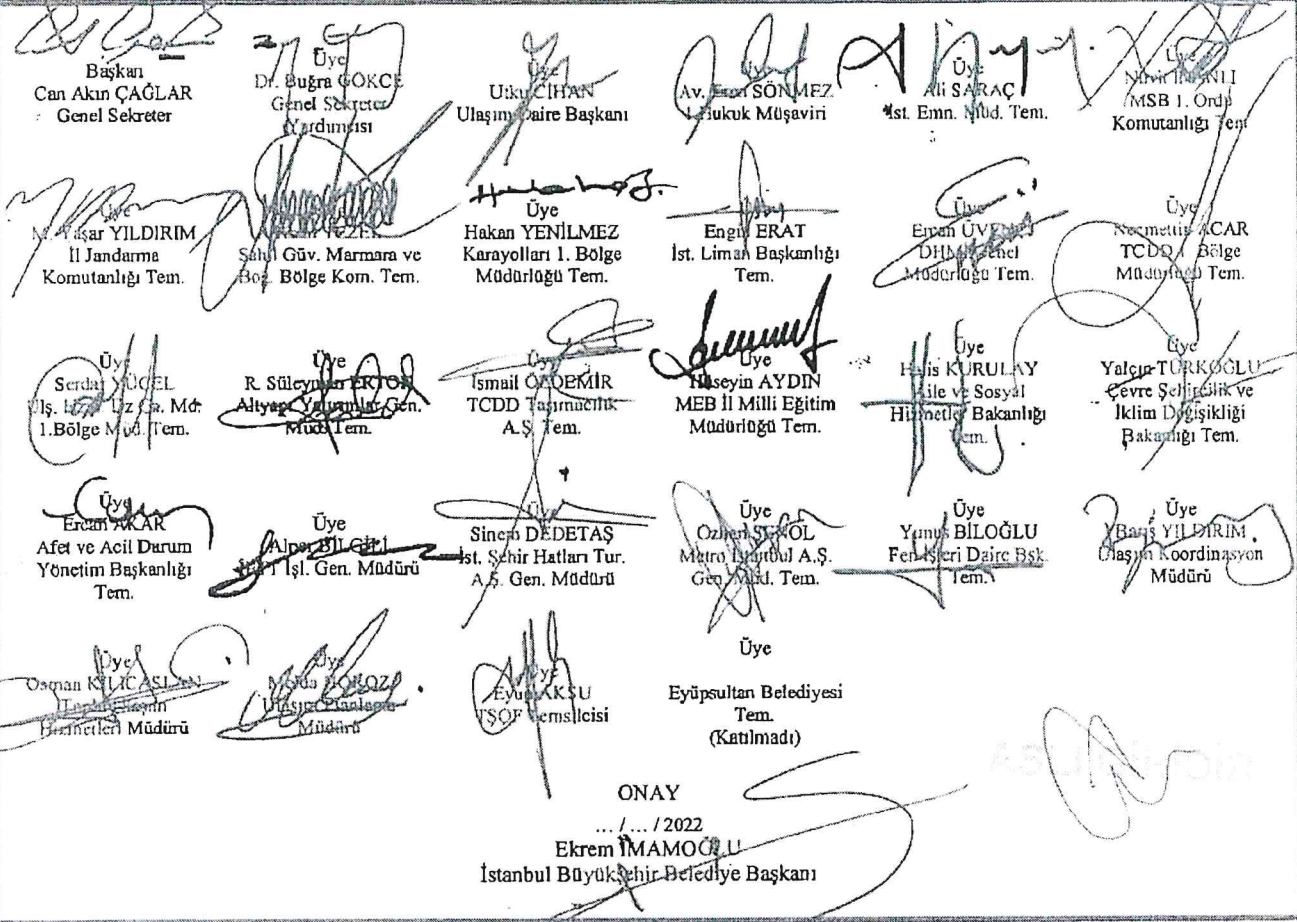 Başkan
Can Akın ÇAĞLAR
Genel Sekreter
Üye
Dr. Buğra GÖKCE
Genel Sekreter
Yardımcısı
Üye
Utku CİHAN
Ulaşım Daire Başkanı
Üye
Av. Eren SÖNMEZ
1. Hukuk Müşaviri
Üye
Ali SARAÇ
İst. Emn. Müd. Tem.
Üye
MSB 1. Ordu
Komutanlığı Tem
Üye
M. Yaşar YILDIRIM
İl Jandarma
Komutanlığı Tem.
Sahil Güv. Marmara ve
Boğ. Bölge Kom. Tem.
Üye
Hakan YENİLMEZ
Karayolları 1. Bölge
Müdürlüğü Tem.
Engin ERAT
İst. Liman Başkanlığı
Tem.
Üye
Ercan
DHMİ Genel
Müdürlüğü Tem.
Üye
Necmettin ACAR
TCDD 1. Bölge
Müdürlüğü Tem.
Üye
Serdar YÜCEL
1.Bölge Müd. Tem.
Üye
R. Süleyman
Altyapı Yatırımlar Gen.
Müd. Tem.
Üye
İsmail ÖZDEMİR
TCDD Taşımacılık
A.Ş. Tem.
Üye
Hüseyin AYDIN
MEB İl Milli Eğitim
Müdürlüğü Tem.
Üye
Halis KURULAY
Aile ve Sosyal
Hizmetler Bakanlığı
Tem.
Üye
Yalçın TÜRKOĞLU
Çevre Şehircilik ve
İklim Değişikliği
Bakanlığı Tem.
Üye
Ercan AKAR
Afet ve Acil Durum
Yönetim Başkanlığı
Tem.
Üye
Alper BİLGİLİ
İşl. Gen. Müdürü
Üye
Sinem DEDETAŞ
İst. Şehir Hatları Tur.
A.Ş. Gen. Müdürü
Üye
Metro İstanbul A.Ş.
Gen. Müd. Tem.
Üye
Yunus BİLOĞLU
Fen İşleri Daire Bşk.
Tem.
Üye
Barış YILDIRIM
Ulaşım Koordinasyon
Müdürü
Üye
Osman KILIÇASLAN
Toplu Ulaşım
Hizmetleri Müdürü
Üye
Ulaşım Planlama
Müdürü
Üye
Eyüp AKSU
TŞOF Temsilcisi
Üye
Eyüpsultan Belediyesi
Tem.
(Katılmadı)
ONAY
... / ... / 2022
Ekrem İMAMOĞLU
İstanbul Büyükşehir Belediye Başkanı